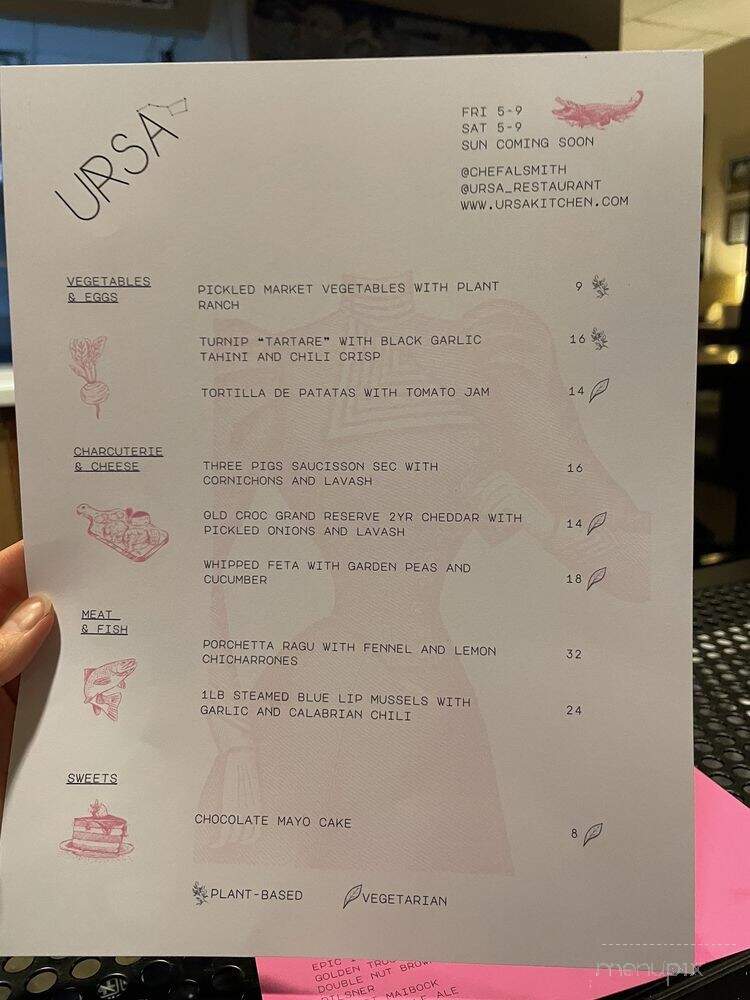 URSA
FRI 5-9
SAT 5-9
SUN COMING SOON
@CHEFALSMITH
@URSA_RESTAURANT
WWW.URSAKITCHEN.COM
VEGETABLES
& EGGS
PICKLED MARKET VEGETABLES WITH PLANT
RANCH
9
TURNIP “TARTARE” WITH BLACK GARLIC
TAHINI AND CHILI CRISP
16
TORTILLA DE PATATAS WITH TOMATO JAM
14
CHARCUTERIE
& CHEESE
THREE PIGS SAUCISSON SEC WITH
CORNICHONS AND LAVASH
16
OLD CROC GRAND RESERVE 2YR CHEDDAR WITH
PICKLED ONIONS AND LAVASH
14
WHIPPED FETA WITH GARDEN PEAS AND
CUCUMBER
18
MEAT
& FISH
PORCHETTA RAGU WITH FENNEL AND LEMON
CHICHARRONES
32
1LB STEAMED BLUE LIP MUSSELS WITH
GARLIC AND CALABRIAN CHILI
24
SWEETS
CHOCOLATE MAYO CAKE
8
PLANT-BASED
VEGETARIAN
EPIC
GOLDEN
DOUBLE NUT BROWN
PILSNER
MAIBOCK
ALE
menupix